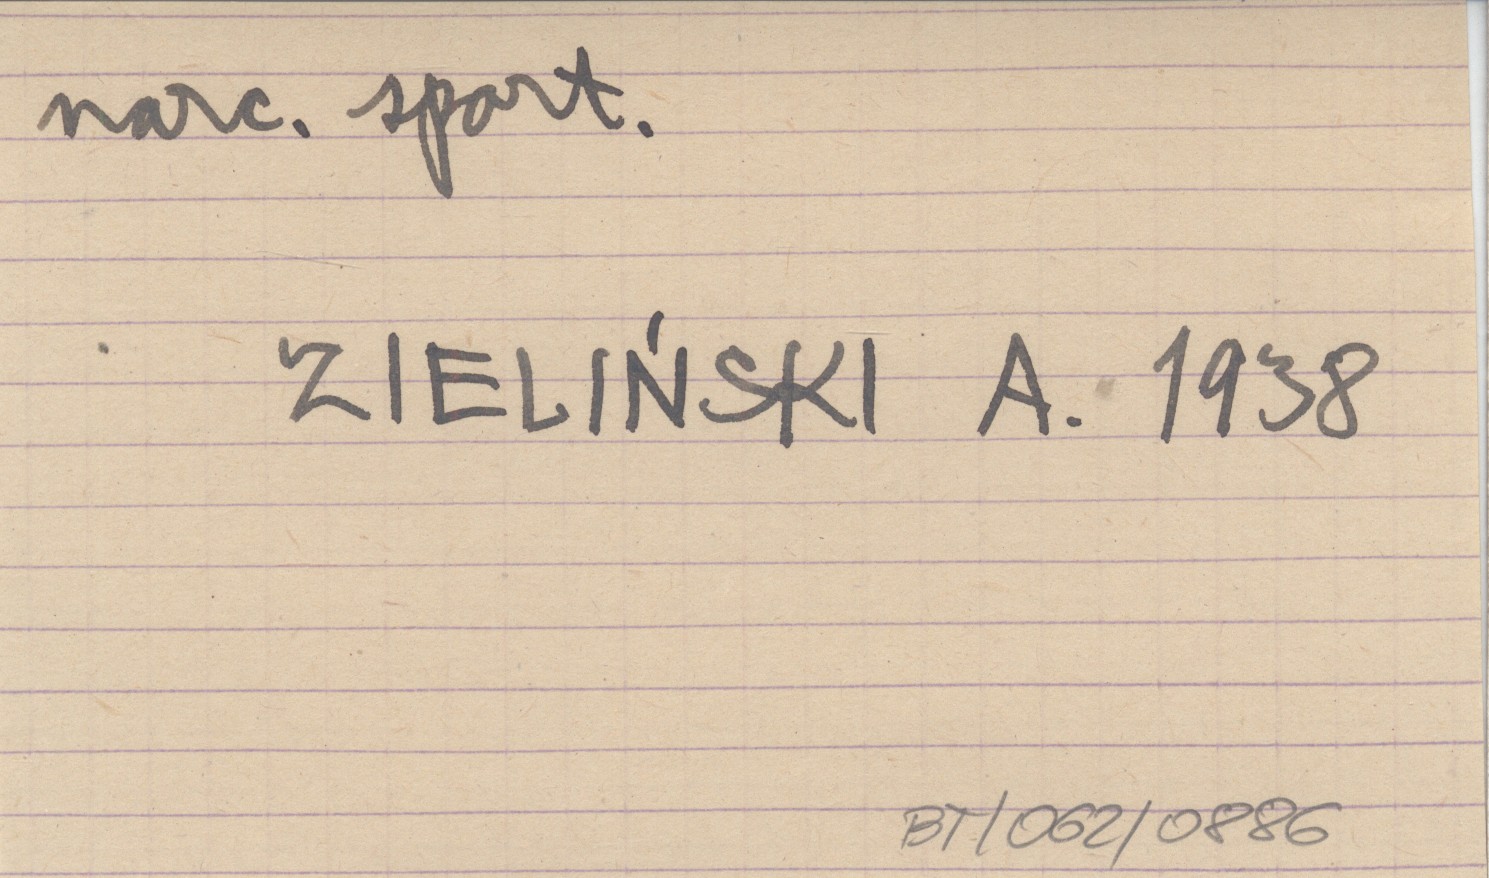 narc. sport.
ZIELIŃSKI A. 1938
BT/062/0886